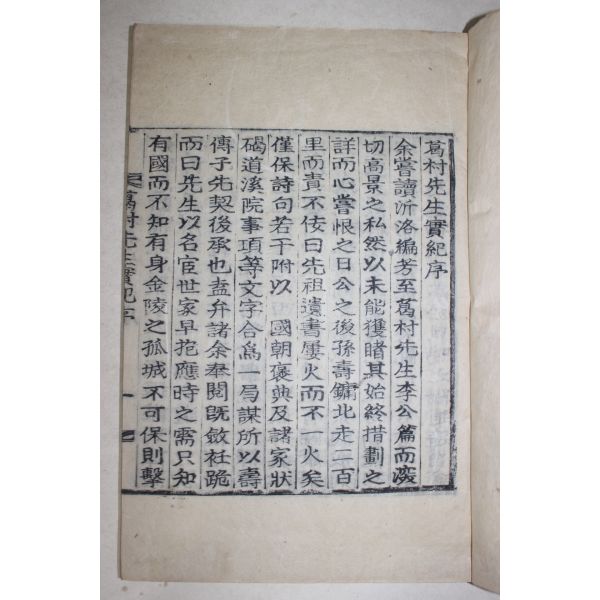 葛村先生實紀序
余嘗讀沂洛編芳至葛村先生李公篇而深
切高景之私然以未能獲睹其始終措劃之
詳而心嘗恨之日公之後孫壽鏞北走二百
里而責不佞曰先祖遺書屢火而不一火矣
僅保詩句若干附以 國朝褒典及諸家狀
碣道溪院事項等文字合爲一局謀所以壽
傳子先契後承也盍弁諸余奉閱旣斂衽跪
而曰先生以名宦世家早抱應時之需只知
有國而不知有身金陵之孤城不可保則擊
葛村先生實紀序 一